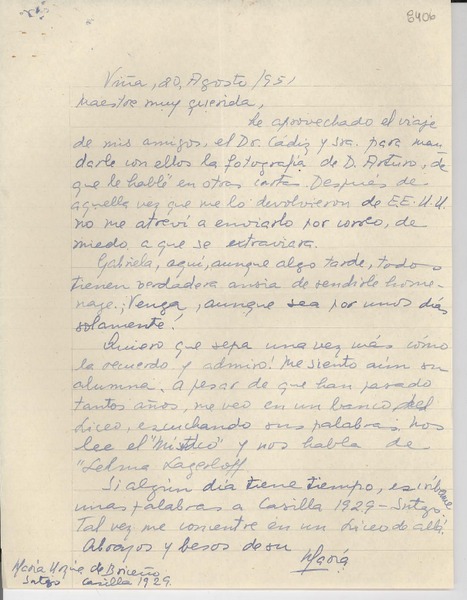 8406
Viña, 20, Agosto/951
Maestra muy querida,
He aprovechado el viaje
de mis amigos, el Dr. Cádiz y Sra. para man
darle con ellos la fotografía de D. Arturo, de
que le hablé en otras cartas. Después de
aquella vez que me lo devolvieron de EE.U.U.
no me atreví a enviarlo por correo, de
miedo a que se extraviara.
Gabriela, aquí, aunque algo tarde, todos
tienen verdadera ansia de rendirle home-
naje. ¡Venga, aunque sea por unos días
solamente.
Quiero que sepa una vez más cómo
la recuerdo y admiro! Me siento aún su
alumna. A pesar de que han pasado
tantos años, me veo en un banco del
Liceo, escuchando sus palabras, nos
lee el "
" y nos habla de
"Selma Lagerloff
Si algún día tiene tiempo, escríbame
unas palabras a Casilla 1929 - Sntgo.
Tal vez me concentre en un Liceo de allá.
Abrazos y besos de su
María
María
de Briceño
Sntgo Casilla 1929.